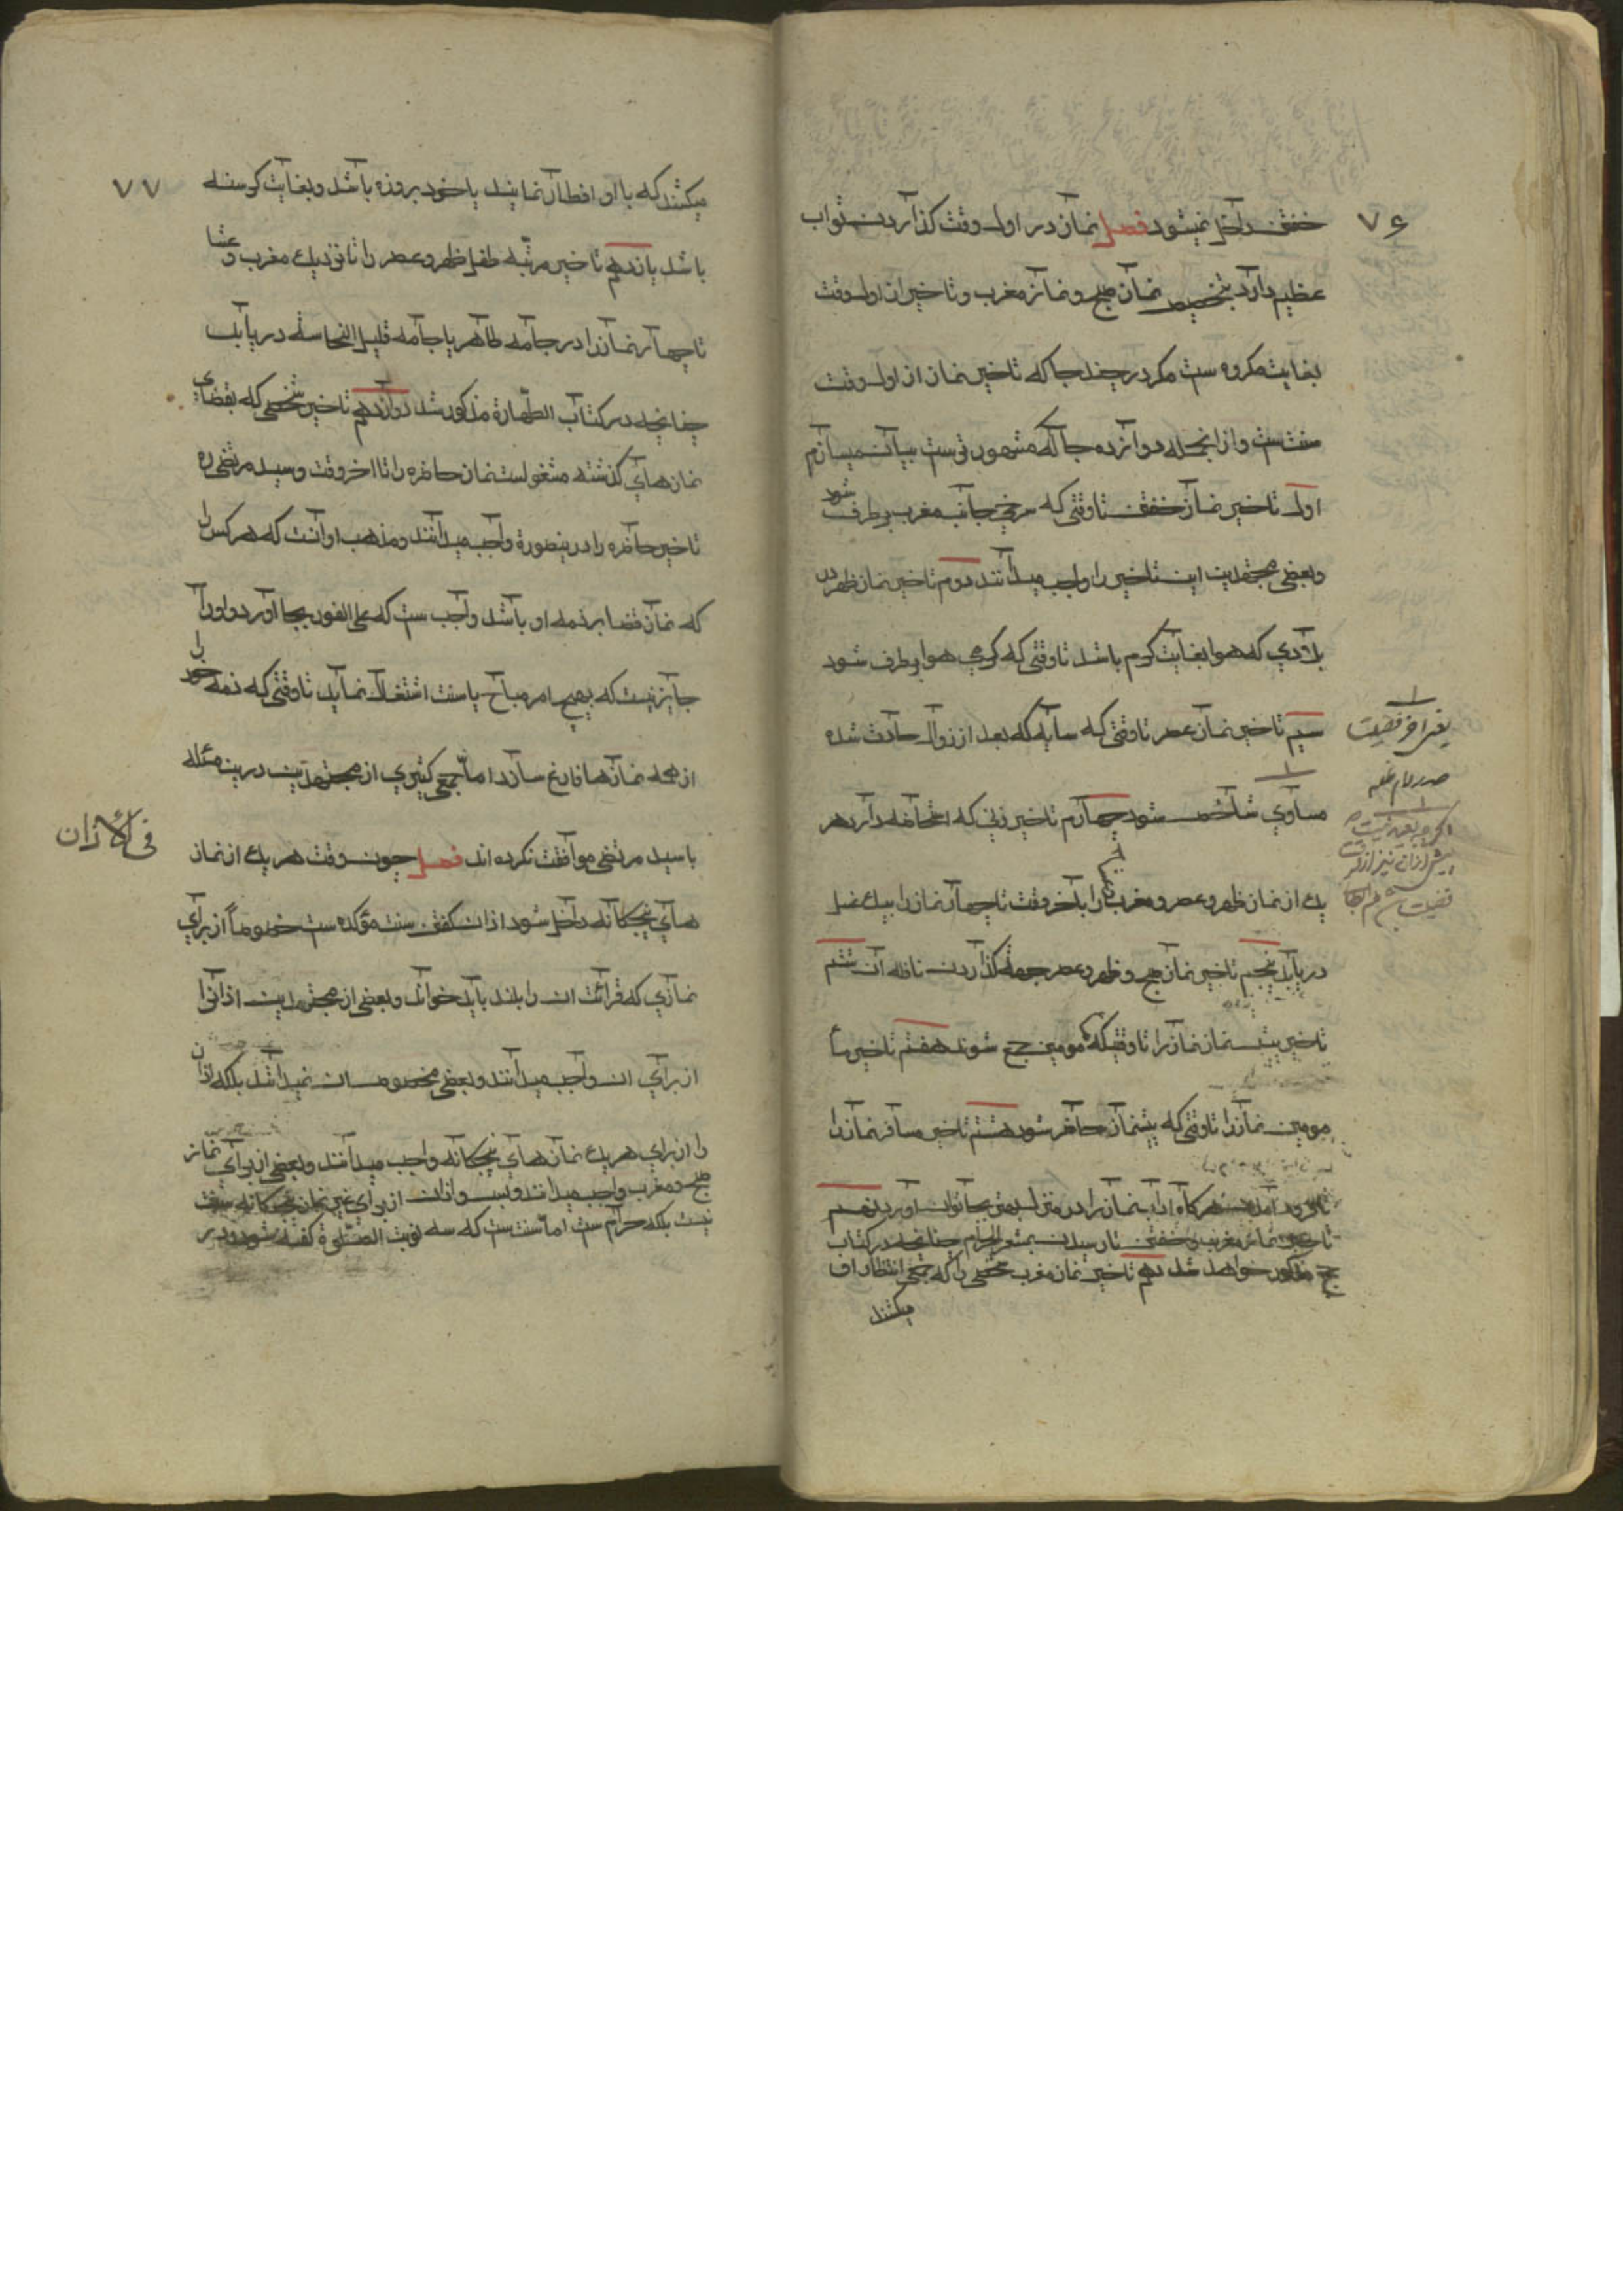 ۷۶
خفتن داخل نمیشود فصل نماز در اول وقت گذاردن ثواب
عظیم دارد بتخصیص نماز صبح و نماز مغرب و تاخیر از اول وقت
بغایت مکروه ست مکر در چند جا که تاخیر نماز از اول وقت
سنت ست و از انجمله دوازده جا که مشهورتر ست بیان میسازم
اول تاخیر نماز خفتن تا وقتی که سرخی جانب مغرب برطرف شود
و بعضی مجتهدین این تاخیر را واجب میدانند دوم تاخیر نماز ظهر در
بلادی که هوا بغایت کرم باشد تا وقتی که کرمی هوا برطرف شود
سیم تاخیر نماز عصر تا وقتی که سایه که بعد از زوال حادث شده
مساوی شاخص شود چهارم تاخیر زنی که استحاضه دارد هر
یک از نماز ظهر و عصر و مغرب را بآخر وقت تا چهار نماز را بیک غسل
دریابد پنجم تاخیر نماز صبح و ظهر و عصر جهة گذاردن نافله آن ششم
تاخیر پیش نماز نماز را تا وقتیکه مومین جمع شوند هفتم تاخیر ما
مومین نماز را تا وقتی که پیشنماز حاضر شود هشتم تاخیر مسافر نماز را
تا فرود آمدن هرگاه آداب نماز را در منزل بهتر بجا تواند آورد نهم
تاخیر نماز مغرب و خفتن تا رسیدن بمشعر الحرام چنانچه در کتاب
حج مذکور خواهد شد دهم تاخیر نماز مغرب شخصی را که جمعی انتظار او
میکشند
یعنی اخر فضیلت
صدر دام ظله
۷۷
میکشند که با او افطار نمایند یا خود بروزه باشد و بغایت کرسنه
باشد یازدهم تاخیر مرتبه طفل ظهر و عصر را تا نزدیک مغرب و عشا
تا چهار نماز را در جامه طاهر یا جامه قلیل النجاسه دریابد
چنانچه در کتاب الطهارة مذکور شد دوازدهم تاخیر شخصی که بقضای
نمازهای گذشته مشغولست نماز حاضره را تا اخر وقت و سید مرتضی ره
تاخیر حاضره را درینصورة واجب میدانند و مذهب او آنست که هر کس را
که نماز قضا بر ذمه او باشد واجب ست که علی الفور بجا آورد و او را
جایز نیست که بهیچ امر مباح یا سنت اشتغال نماید تا وقتی که ذمه خود را
از همه نمازها فارغ سازد اما جمع کثیری از مجتهدین درین مسئله
با سید مرتضی موافقت نکرده اند فصل چون وقت هر یک از نماز
های پنجکانه داخل شود اذان گفتن سنت مؤکده ست خصوصاً از برای
نمازی که قرائت ان را بلند باید خواند و بعضی از مجتهدین اذانرا
از برای ان واجب میدانند و بعضی مخصوص ان نمیدانند بلکه اذان
را از برای هر یک نمازهای پنجکانه واجب میدانند و بعضی از برای نماز
صبح و مغرب واجب میدانند و بس و اذان از برای غیر نماز پنجکانه سنت
نیست بلکه حرام ست اما سنت ست که سه نوبت الصلوة گفته شود و در
فی الاذان